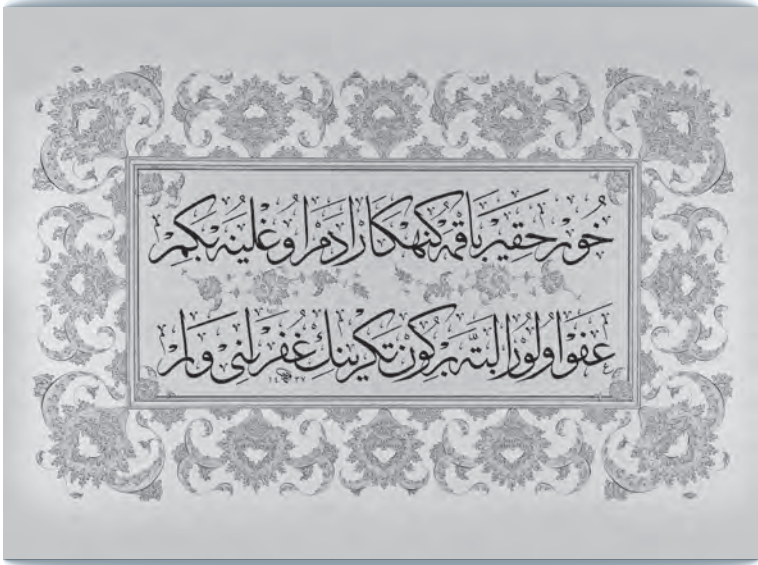 خور حقير باقمه كنهكار آدم اوغلينه بكم
عفو اولور البته بر كون تكرينك غفراني وار
١٤٣٧